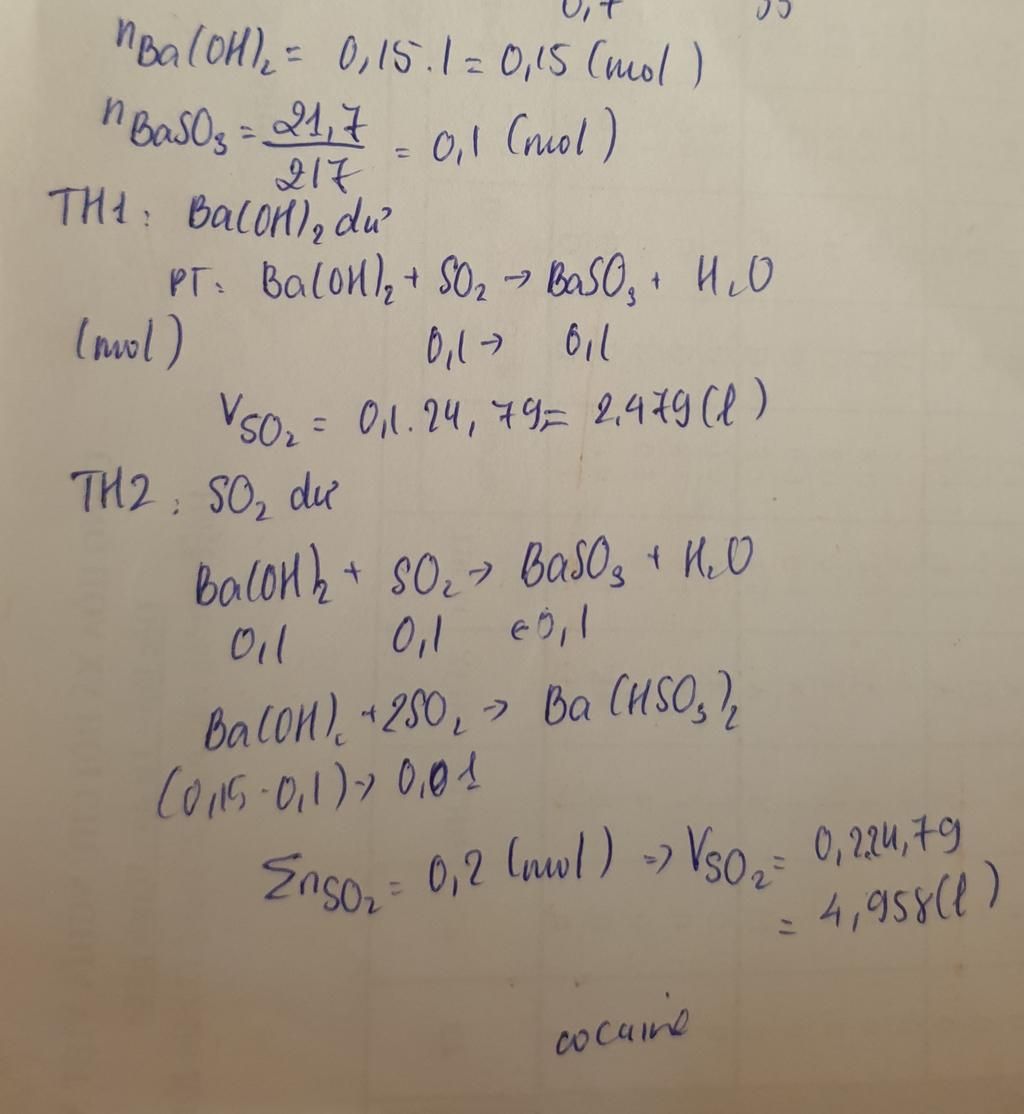 n Ba(OH)₂ = 0,15.1 = 0,15 (mol)
n BaSO₃ = 21,7 / 217 = 0,1 (mol)
TH1: Ba(OH)₂ dư
PT: Ba(OH)₂ + SO₂ → BaSO₃ + H₂O
(mol) 0,1 → 0,1
V SO₂ = 0,1.24,79 = 2,479 (l)
TH2: SO₂ dư
Ba(OH)₂ + SO₂ → BaSO₃ + H₂O
0,1 0,1 ← 0,1
Ba(OH)₂ + 2SO₂ → Ba(HSO₃)₂
(0,15-0,1) → 0,01
Σn SO₂ = 0,2 (mol) => V SO₂ = 0,2.24,79
= 4,958 (l)
cocaine